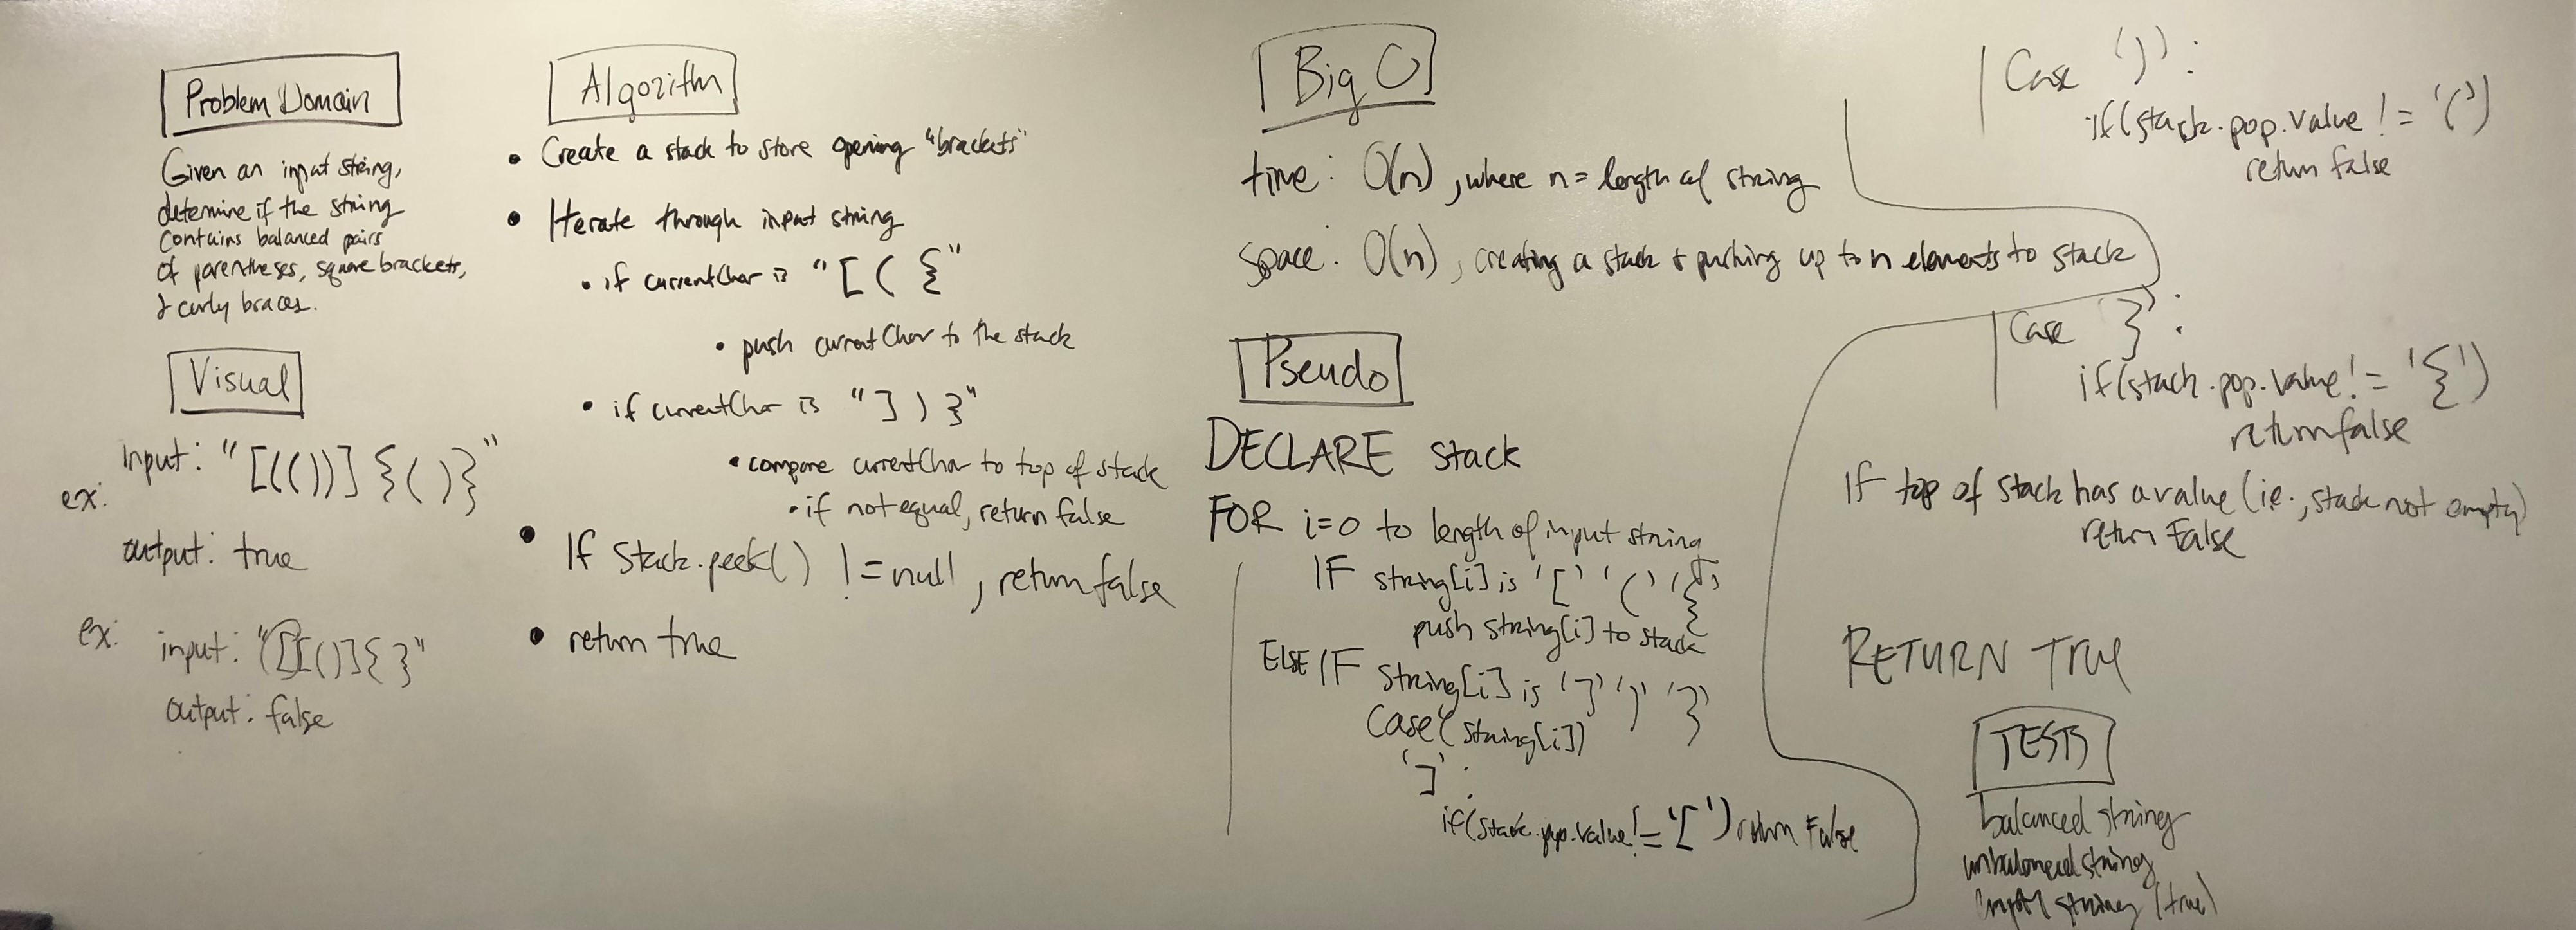 Problem Domain
Given an input string,
determine if the string
contains balanced pairs
of parentheses, square brackets,
& curly braces.
Visual
input: "[(())]{()}"
ex:
output: true
ex: input: "([[()]{}"
output: false
Algorithm
• Create a stack to store opening "brackets"
• Iterate through input string
• if currentChar is "[({"
• push currentChar to the stack
• if currentChar is "])}"
• compare currentChar to top of stack
• if not equal, return false
• If Stack.peek() != null, return false
• return true
Big O
time: O(n), where n = length of string
space: O(n), creating a stack & pushing up to n elements to stack
Pseudo
DECLARE stack
FOR i=0 to length of input string
IF string[i] is '[' '(' '{'
push string[i] to stack
ELSE IF string[i] is ']' ')' '}'
Case(string[i])
']':
if(stack.pop.value != '[') return False
Case ')':
if(stack.pop.value != '(')
return false
Case '}':
if(stack.pop.value != '{')
return false
If top of stack has a value (i.e., stack not empty)
return False
RETURN True
TESTS
balanced string
unbalanced string
empty string (true)